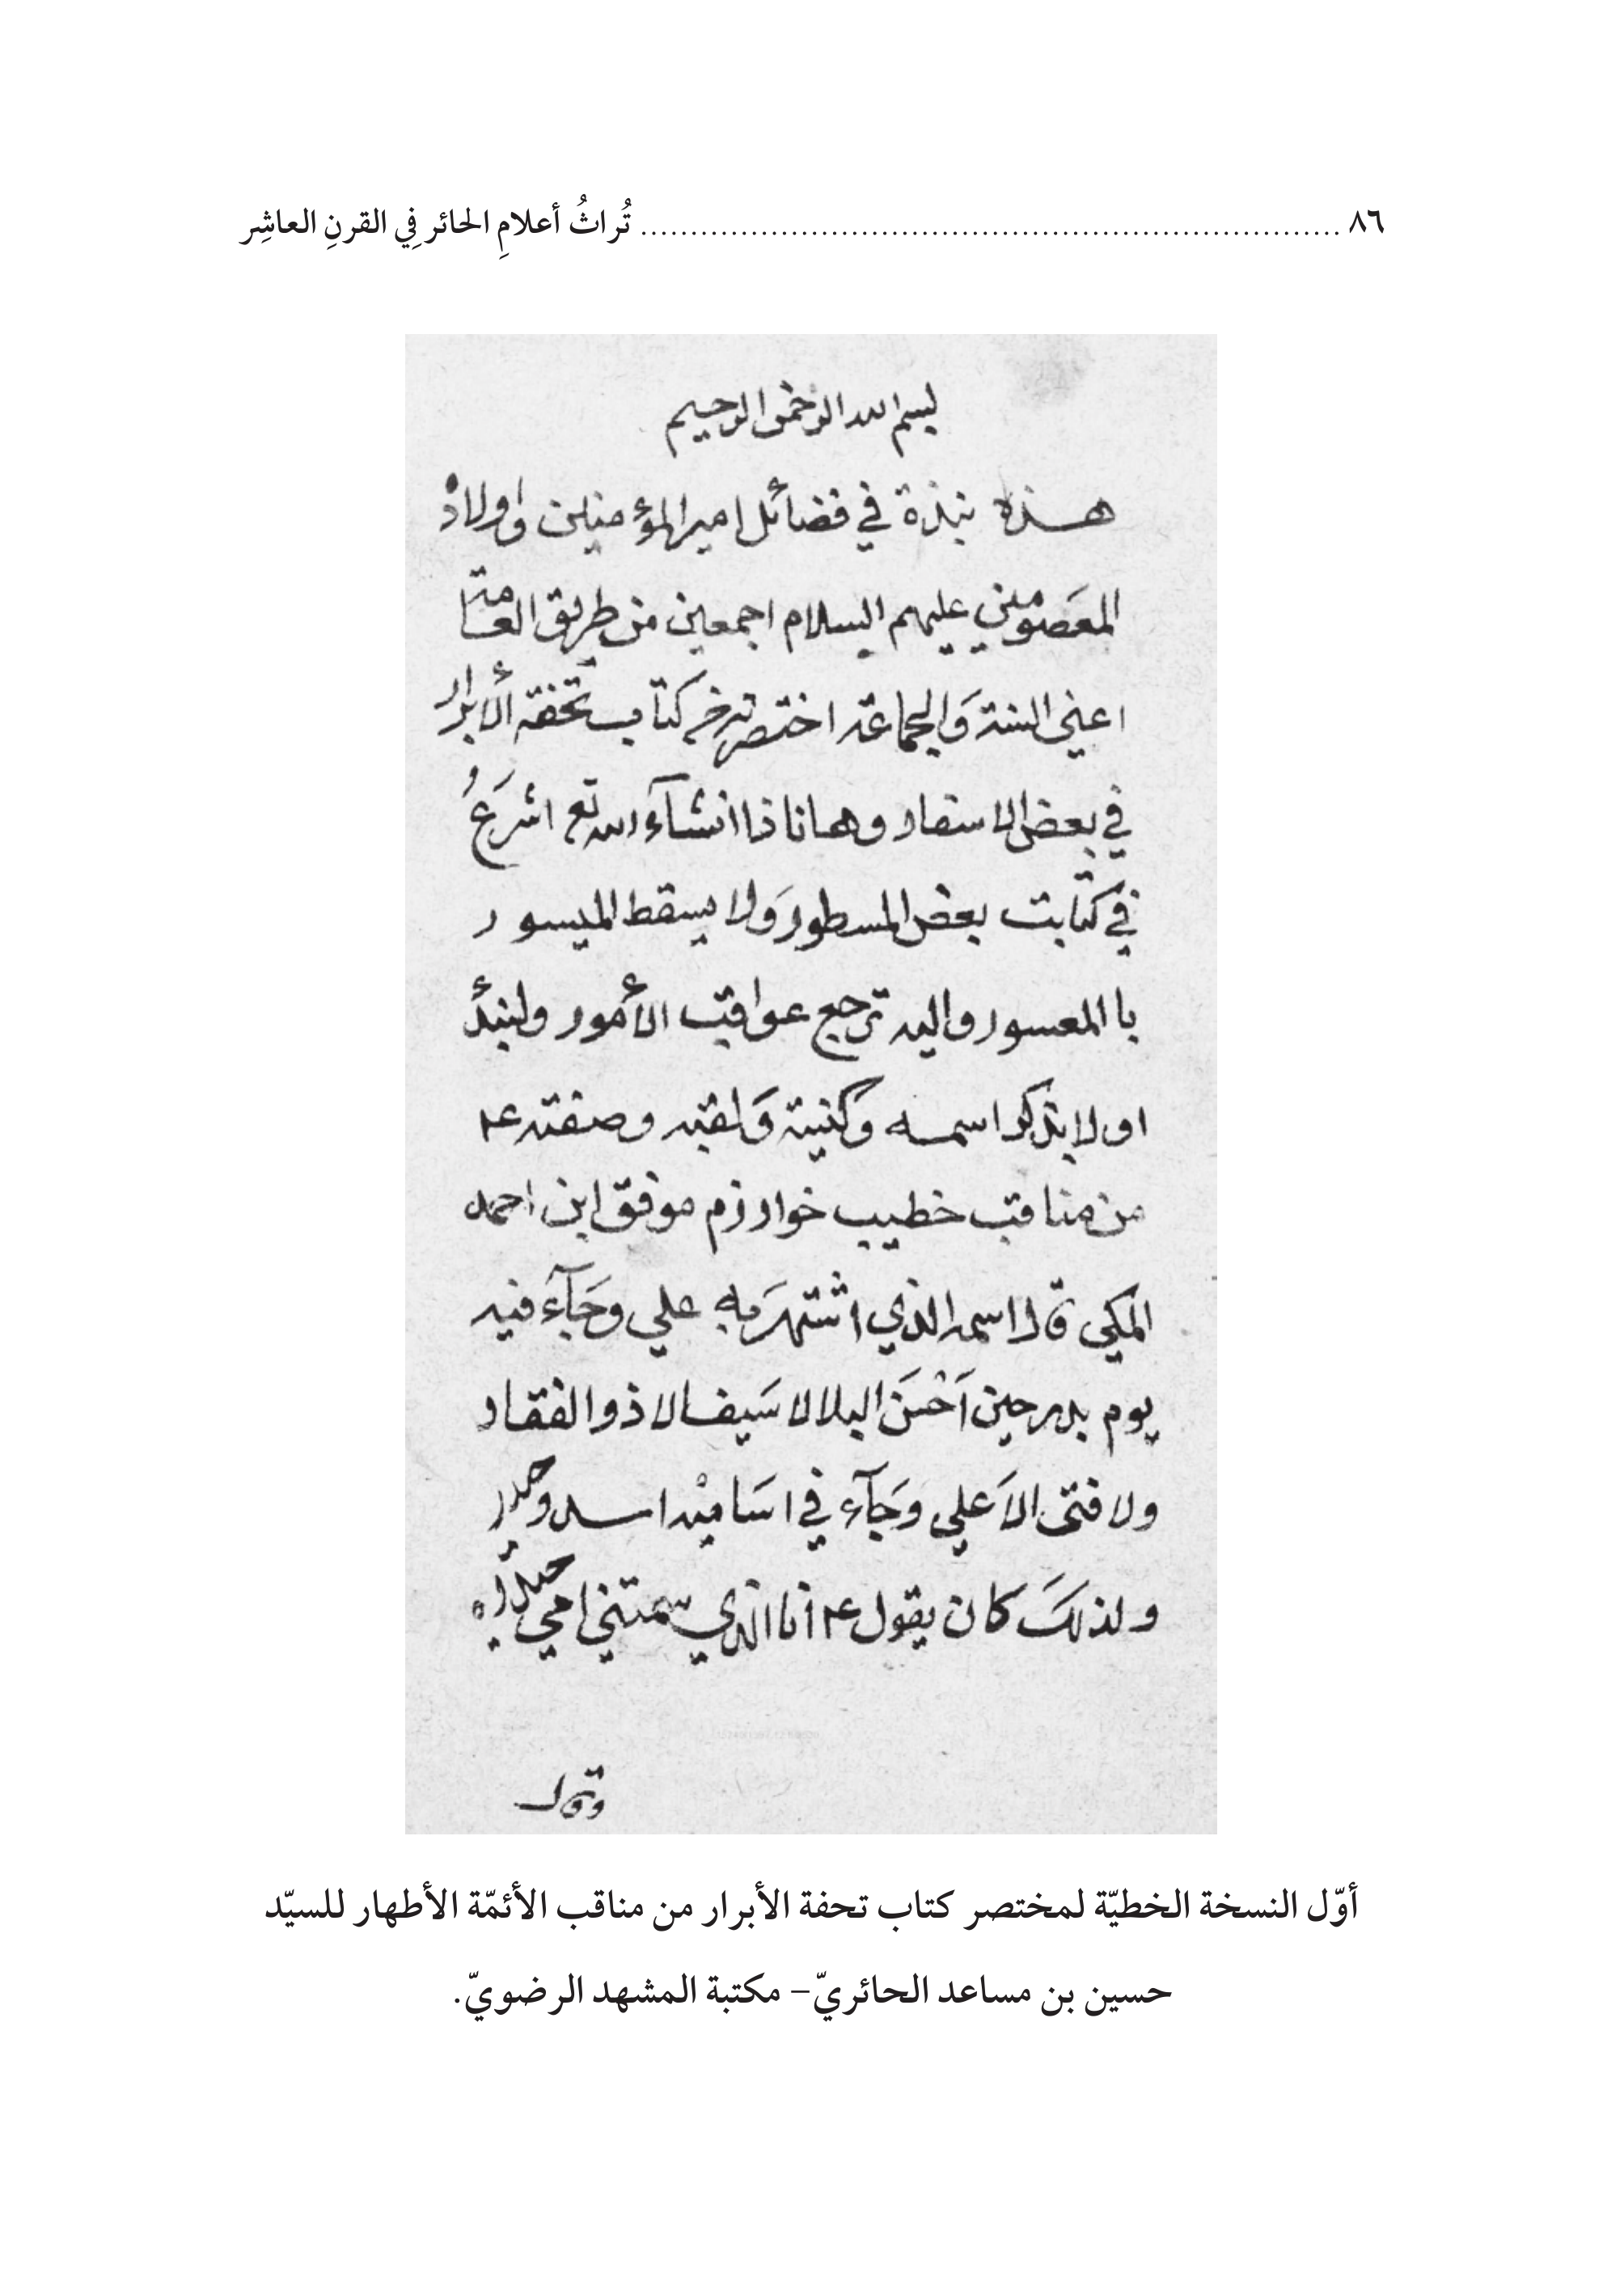 ٨٦ ........................................................................ تُراثُ أعلامِ الحائر فِي القرنِ العاشِر
بسم الله الرحمن الرحيم
هذه نبذة في فضائل امير المؤمنين واولاده
المعَصومين عليهم السلام اجمعين من طريق العامة
اعني السنة وَالجماعة اختصرته من كتاب تحفة الأبرار
في بعض الاسفار وها انا ذا انشآء الله تع اشرَعُ
في كتابت بعض المسطور وَلا يسقط الميسور
با المعسور واليه ترجع عواقب الأمور ولنبدأ
اولا بذكر اسمه وكنيته وَلقبه وصفته ع
من مناقب خطيب خوارزم موفق ابن احمد
المكي قال اسمه الذي اشتهرَ به علي وجَآء فيه
يوم بدر حين اَحْسَنَ البلا لا سَيف الا ذو الفقار
ولا فتى الاَ علي وجَآء في اسَاميْه اسد وحيدر
ولذلكَ كان يقول ع أنا الذي سمتني امي حيدره
وقال
أوّل النسخة الخطيّة لمختصر كتاب تحفة الأبرار من مناقب الأئمّة الأطهار للسيّد
حسين بن مساعد الحائريّ– مكتبة المشهد الرضويّ.